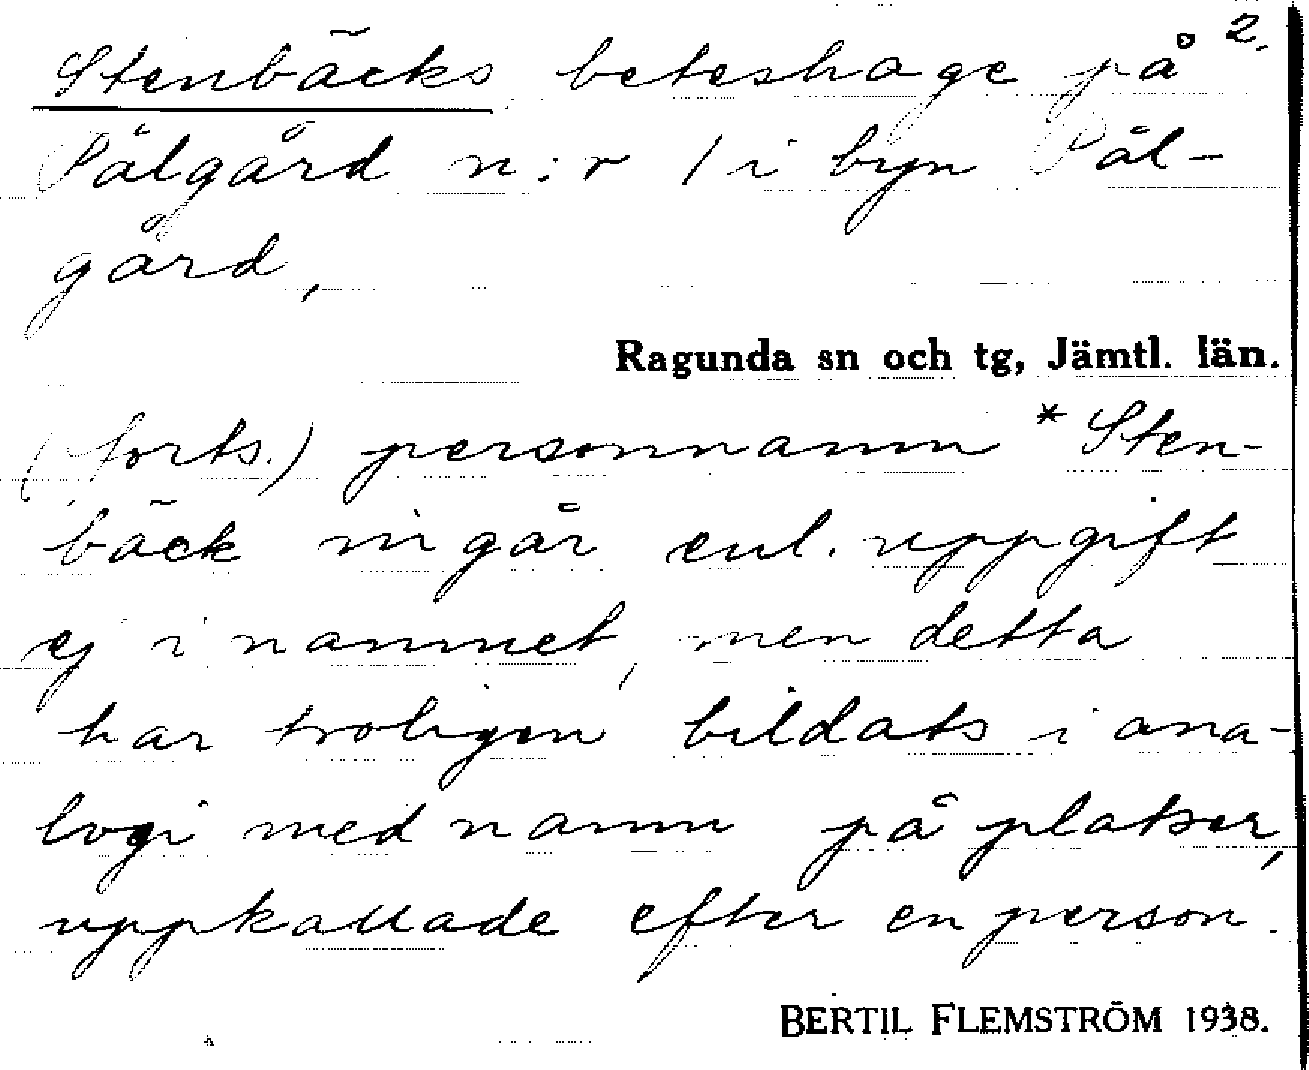 2.
Stenbäcks beteshage på
Pålgård n:r 1 i byn Pål-
gård,
Ragunda sn och tg, Jämtl. län.
(forts.) personnamn *Sten-
bäck ingår enl. uppgift
ej i namnet, men detta
har troligen bildats i ana-
logi med namn på platser,
uppkallade efter en person.
BERTIL FLEMSTRÖM 1938.